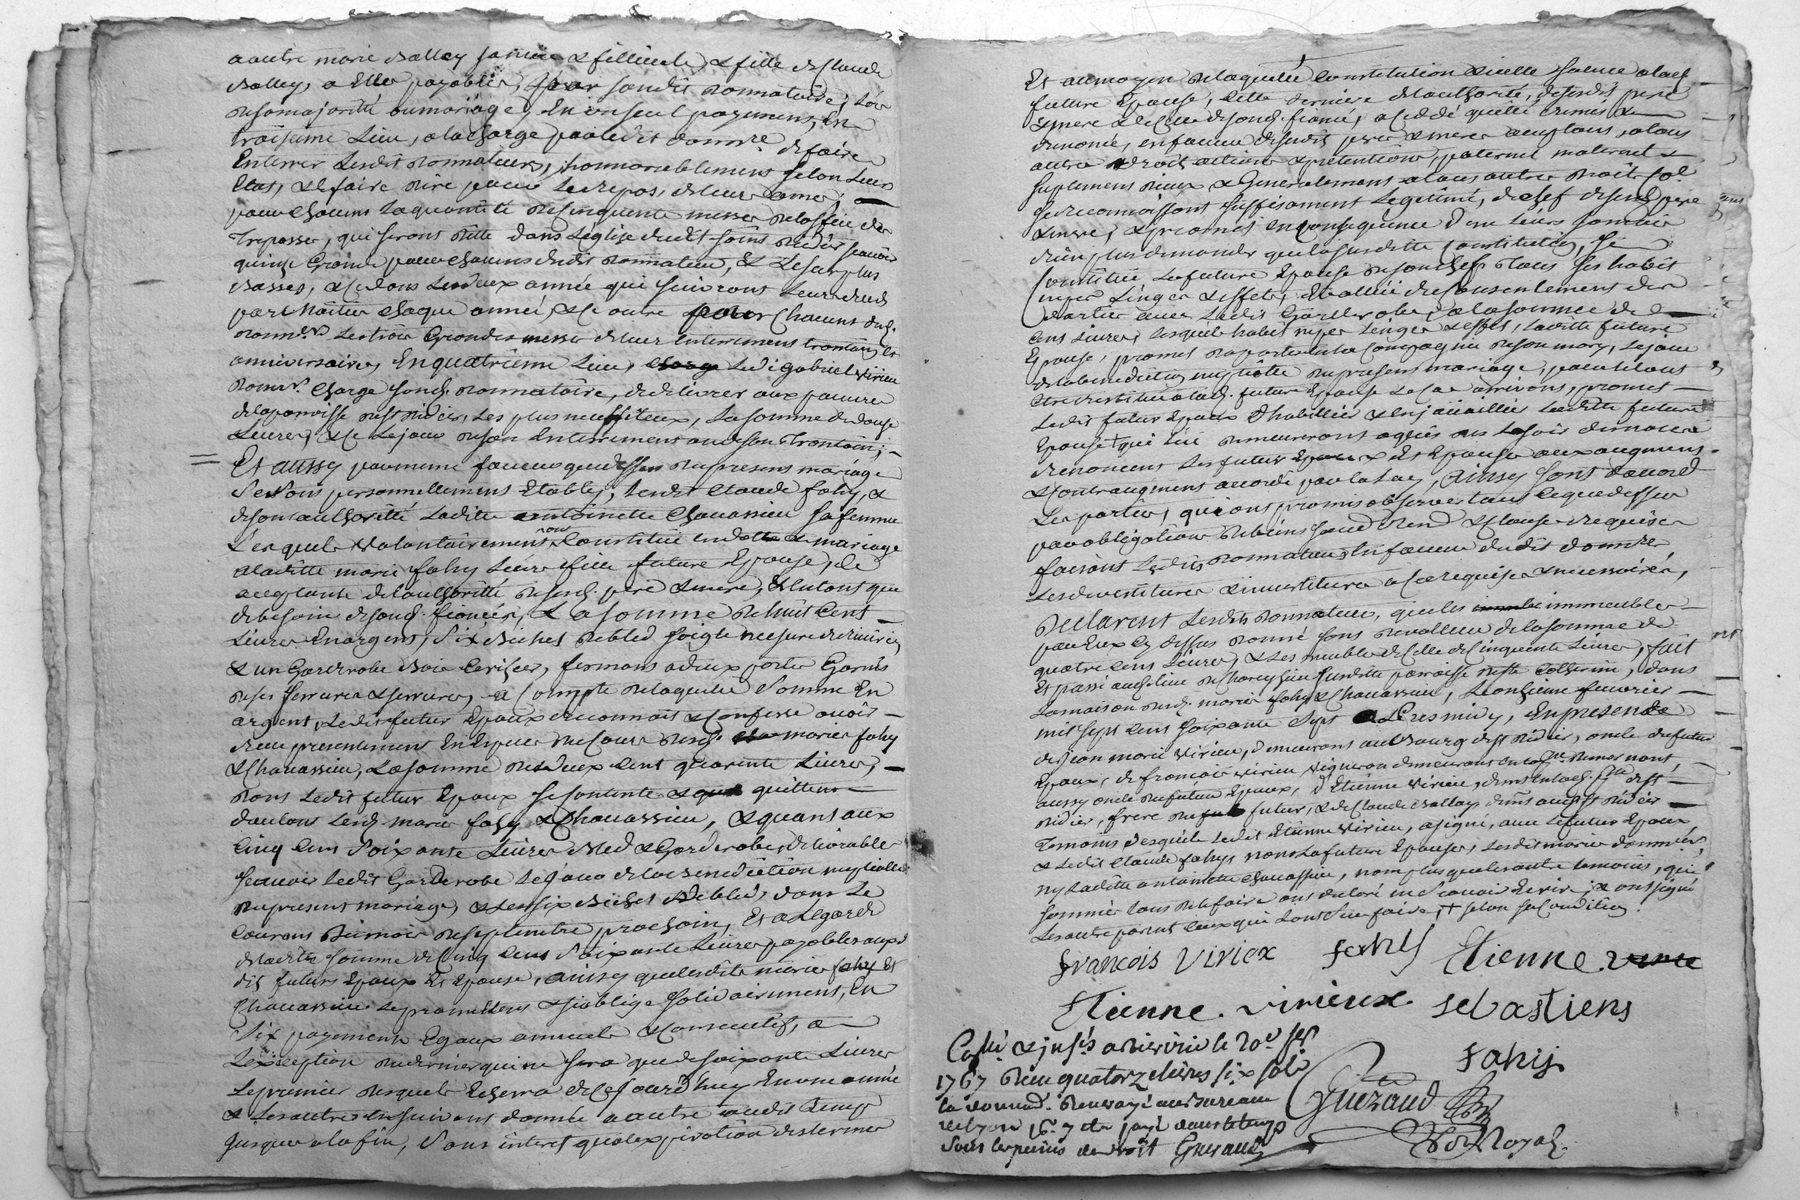 a autre marie Balley sa niece & fillieule, & fille de Claude
Balley, a Elle payable, par sondit donnataire, lors
de sa majorité ou mariage, En un seul payement, En
troisieme Lieu, a la charge par ledit donn.re de faire
Enterrer Lesdits donnateurs, honnorablement selon Leur
Etat, & de faire dire pour Le repos de leur ame,
pour chacuns la quantité de Cinquente messes de l'office des
Trepasses, qui seront ditte dans L'eglise dudit Saint Didier sçavoir
quinze Grande pour chacuns desdits donnateurs, & Le surplus
Basses, & ce dans Les deux année qui suivront Leurs deceds
par Moitier chaque année, & ce outre pour Chacuns desd.
donn.rs Les trois Grandes messe de leur Enterrement trentain &
anniversaire, En quatrieme Lieu, Ledit gabriel virieu
donn.r Charge sond. donnataire, de delivrer aux pauvres
de la parroisse de St Didier, Les plus necessiteux, La somme de douze
Livres, & ce Le jour de son Enterrement ou de son trentain;
Et aussy par meme faveur que dessus du present mariage
se sont personnellement Etablis, Lesdit Claude fahy, &
de son authorité Laditte antoinette Chavassieu sa femme
Lesquels volontairement ont Constitué en dotte & mariage
a laditte marie fahy Leur fille future Epouse, de
acceptante de l'authorité de sesd. pere & mere, & autant que
de besoin de sond. fiancé, La somme de huit Cent
Livres En argent, six Bichets de bled seigle mesure de
& un Garderobe Bois Cerisier, fermant a deux portes Garnis
de ses ferrures & serrures, a Compte de laquelle somme En
argent, Ledit futur Epoux reconnoit & Confesse avoir
reçu presentement En Especes de Cours desd. mariés fahy
& Chavassieu, La somme de deux Cent quarente Livres,
dont Ledit futur Epoux se contente & quitte
d'autant Lesd. mariés fahy & Chavassieu, & quant aux
Cinq Cent soixante Livres Bled & Garderobe, delivrables
sçavoir Ledit Garderobe Le jour de la benediction nuptialle
du present mariage, & Les six Bichets de bled, dans Le
courant du mois de septembre prochain, Et a L'egard de
laditte somme de Cinq Cent soixante Livres payables auxd
dits futurs Epoux & Epouse, ainsy que lesdits mariés fahy Et
Chavassieu Le promettent & s'oblige solidairement, En
six payements Egaux annuels & Consecutifs, a
L'exception du dernier qui ne sera que de soixante Livres
Le premier desquels Echerra de Ce jourd'huy En une année
& Les autres En suivant d'année a autre audit temps
jusques a la fin, sans interet qu'a l'expiration des termes
Et au moyen de laquelle Constitution & icelle faitte a lad.
future Epouse, cette derniere de l'authorité, de sesdits pere
& mere & de celle de sond. fiancé, a Cedé quitté remis &
renoncé, en faveur de sesdits pere & mere acceptans, a tous
autres droits actions & pretentions, paternel maternel &
suplement d'iceux & Generalement a tous autres droits sol
se reconnoissant suffisament Legitimé, du chef de sesd. pere
& mere, & promis en consequence d'eux leurs
rien plus demander que la susditte constitution, se
Constitue La future Epouse de son chef tous ses habit
nipes Linges & effets, Evallué du Consentement des
parties avec Ledit Garderobe, a la somme de
Cent Livres, lesquels habit nipes Linges & effets, Laditte future
Epouse, promet d'aporter en la Compagnie de son mary, Le jour
de la benediction nuptialle du present mariage, pour le tout
etre restitué a lad. future Epouse Le Cas arrivant, promet
Ledit futur Epoux d'habiller & enjoüailler Laditte future
Epouse, qui Lui demeureront aquis des Lesoir de noces
renoncent Les futur Epoux Et Epouse aux augment
& Contraugment acordé par la Loy, Ainsy sont d'accord
Les parties, qui ont promis observer tout ce que dessus
par obligation de biens soumissions renon.t & Clauses requises
faisant Lesdits donnateurs En faveur dudit donn.re
Les devestitures & investitures a Ce requises & necessaires,
Declarent Lesdits donnateurs, que les immeubles
par Eux Cy dessus donné sont de valleur de la somme de
quatre Cent Livres, & Les meubles de Celle de Cinquente Livres, fait
Et passé au Lieu de ditte parroisse de St , dans
La maison desd. mariés fahy & Chavassieu, Le onzieme fevrier
mil sept cent soixante sept Apres midy, En presence
de Jean marie virieu, demeurant au Bourg de St Didier, oncle du futur
Epoux, de françois virieu vigneron demeurant
aussy oncle du futur Epoux, d'Etienne virieu, demt
Didier, frere du futur, & de Claude Balley, demt audit St Didier
Temoins desquels Ledit Etienne virieu, a signé, avec Le futur Epoux
& Ledit Claude fahy, non La future Epouse, Lesdits mariés donnateurs,
ny Laditte antoinette Chavassieu, non plus que les autres temoins, qui
sommés tous de le faire ont declaré ne sçavoir Ecrire, & ont signé
Les autres parents Ceux qui l'ont sçu faire selon sa Condition.
francois viriex fahy Etienne
Etienne. virieux sebastiens
fahij
Collé & insi. a Nervieu le 20e fer
1767 Reçu quatorze livres six sols
la donnaõn. Renvoyé au Bureau
de Lyon
sous les peines de droit Gueraud
Gueraud
Not Royal